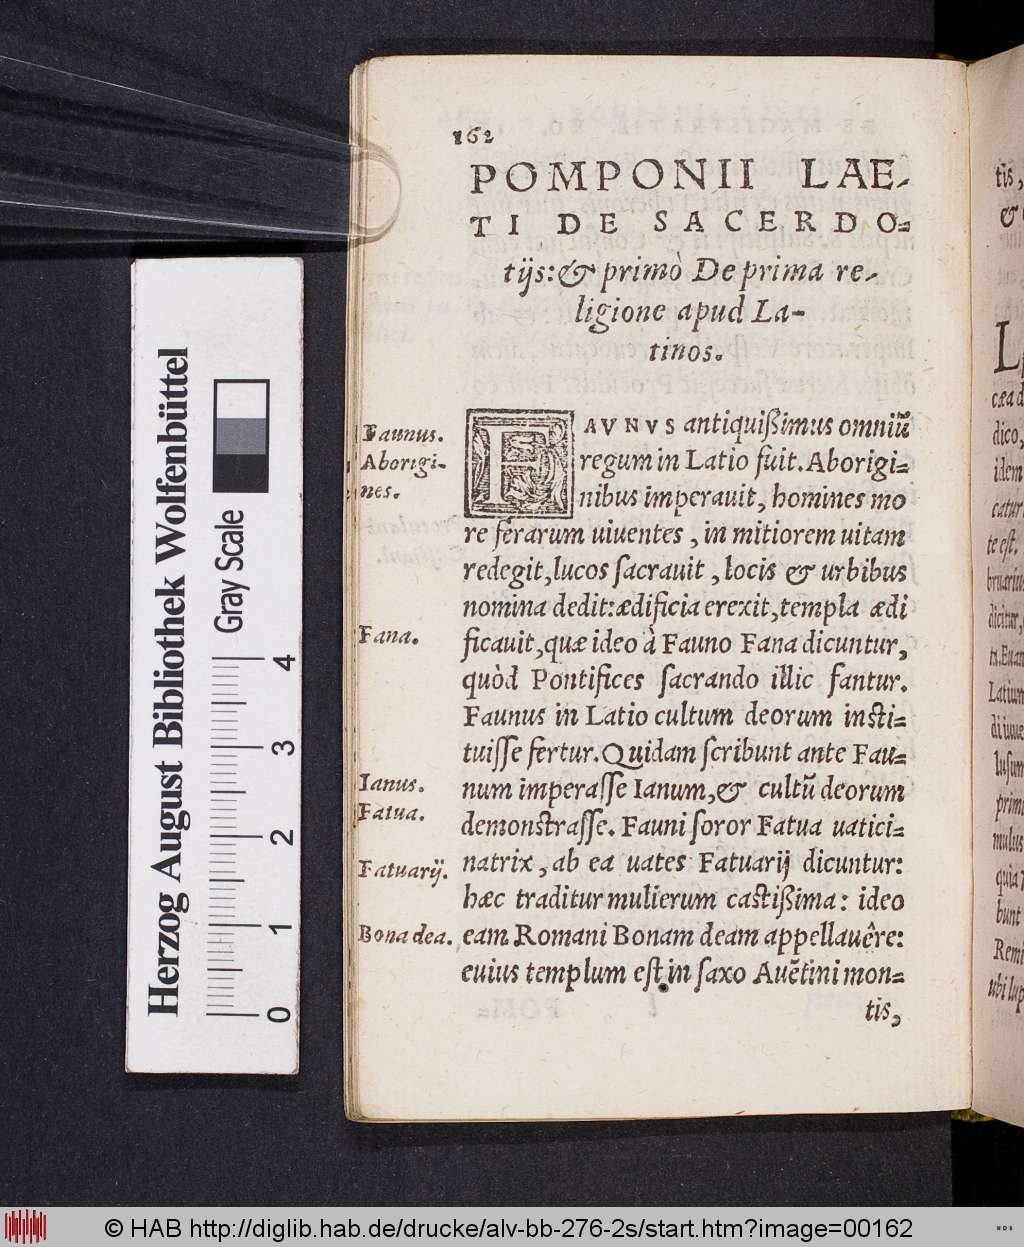 162
POMPONII LAE-
TI DE SACERDO=
tijs: & primò De prima re-
ligione apud La-
tinos.
Faunus.
Aborigi-
nes.
FAVNVS antiquißimus omniũ
regum in Latio fuit. Aborigi=
nibus imperauit, homines mo
re ferarum uiuentes, in mitiorem uitam
redegit, lucos sacrauit, locis & urbibus
nomina dedit: ædificia erexit, templa ædi
Fana.
ficauit, quæ ideo à Fauno Fana dicuntur,
quòd Pontifices sacrando illic fantur.
Faunus in Latio cultum deorum insti=
tuisse fertur. Quidam scribunt ante Fau=
Ianus.
num imperasse Ianum, & cultũ deorum
Fatua.
demonstrasse. Fauni soror Fatua uatici=
Fatuarij.
natrix, ab ea uates Fatuarij dicuntur:
hæc traditur mulierum castißima: ideo
Bona dea.
eam Romani Bonam deam appellauêre:
cuius templum est in saxo Auẽtini mon=
tis,
tis,
&
cæa d
dico,
idem
catur
te est.
bruariu
dicitur,
tis. Euan
Latium
di iuue
lusum
prim
mulus
quia
bunt
Remi
ubi lup
Herzog August Bibliothek Wolfenbüttel
Gray Scale
0 1 2 3 4
© HAB http://diglib.hab.de/drucke/alv-bb-276-2s/start.htm?image=00162